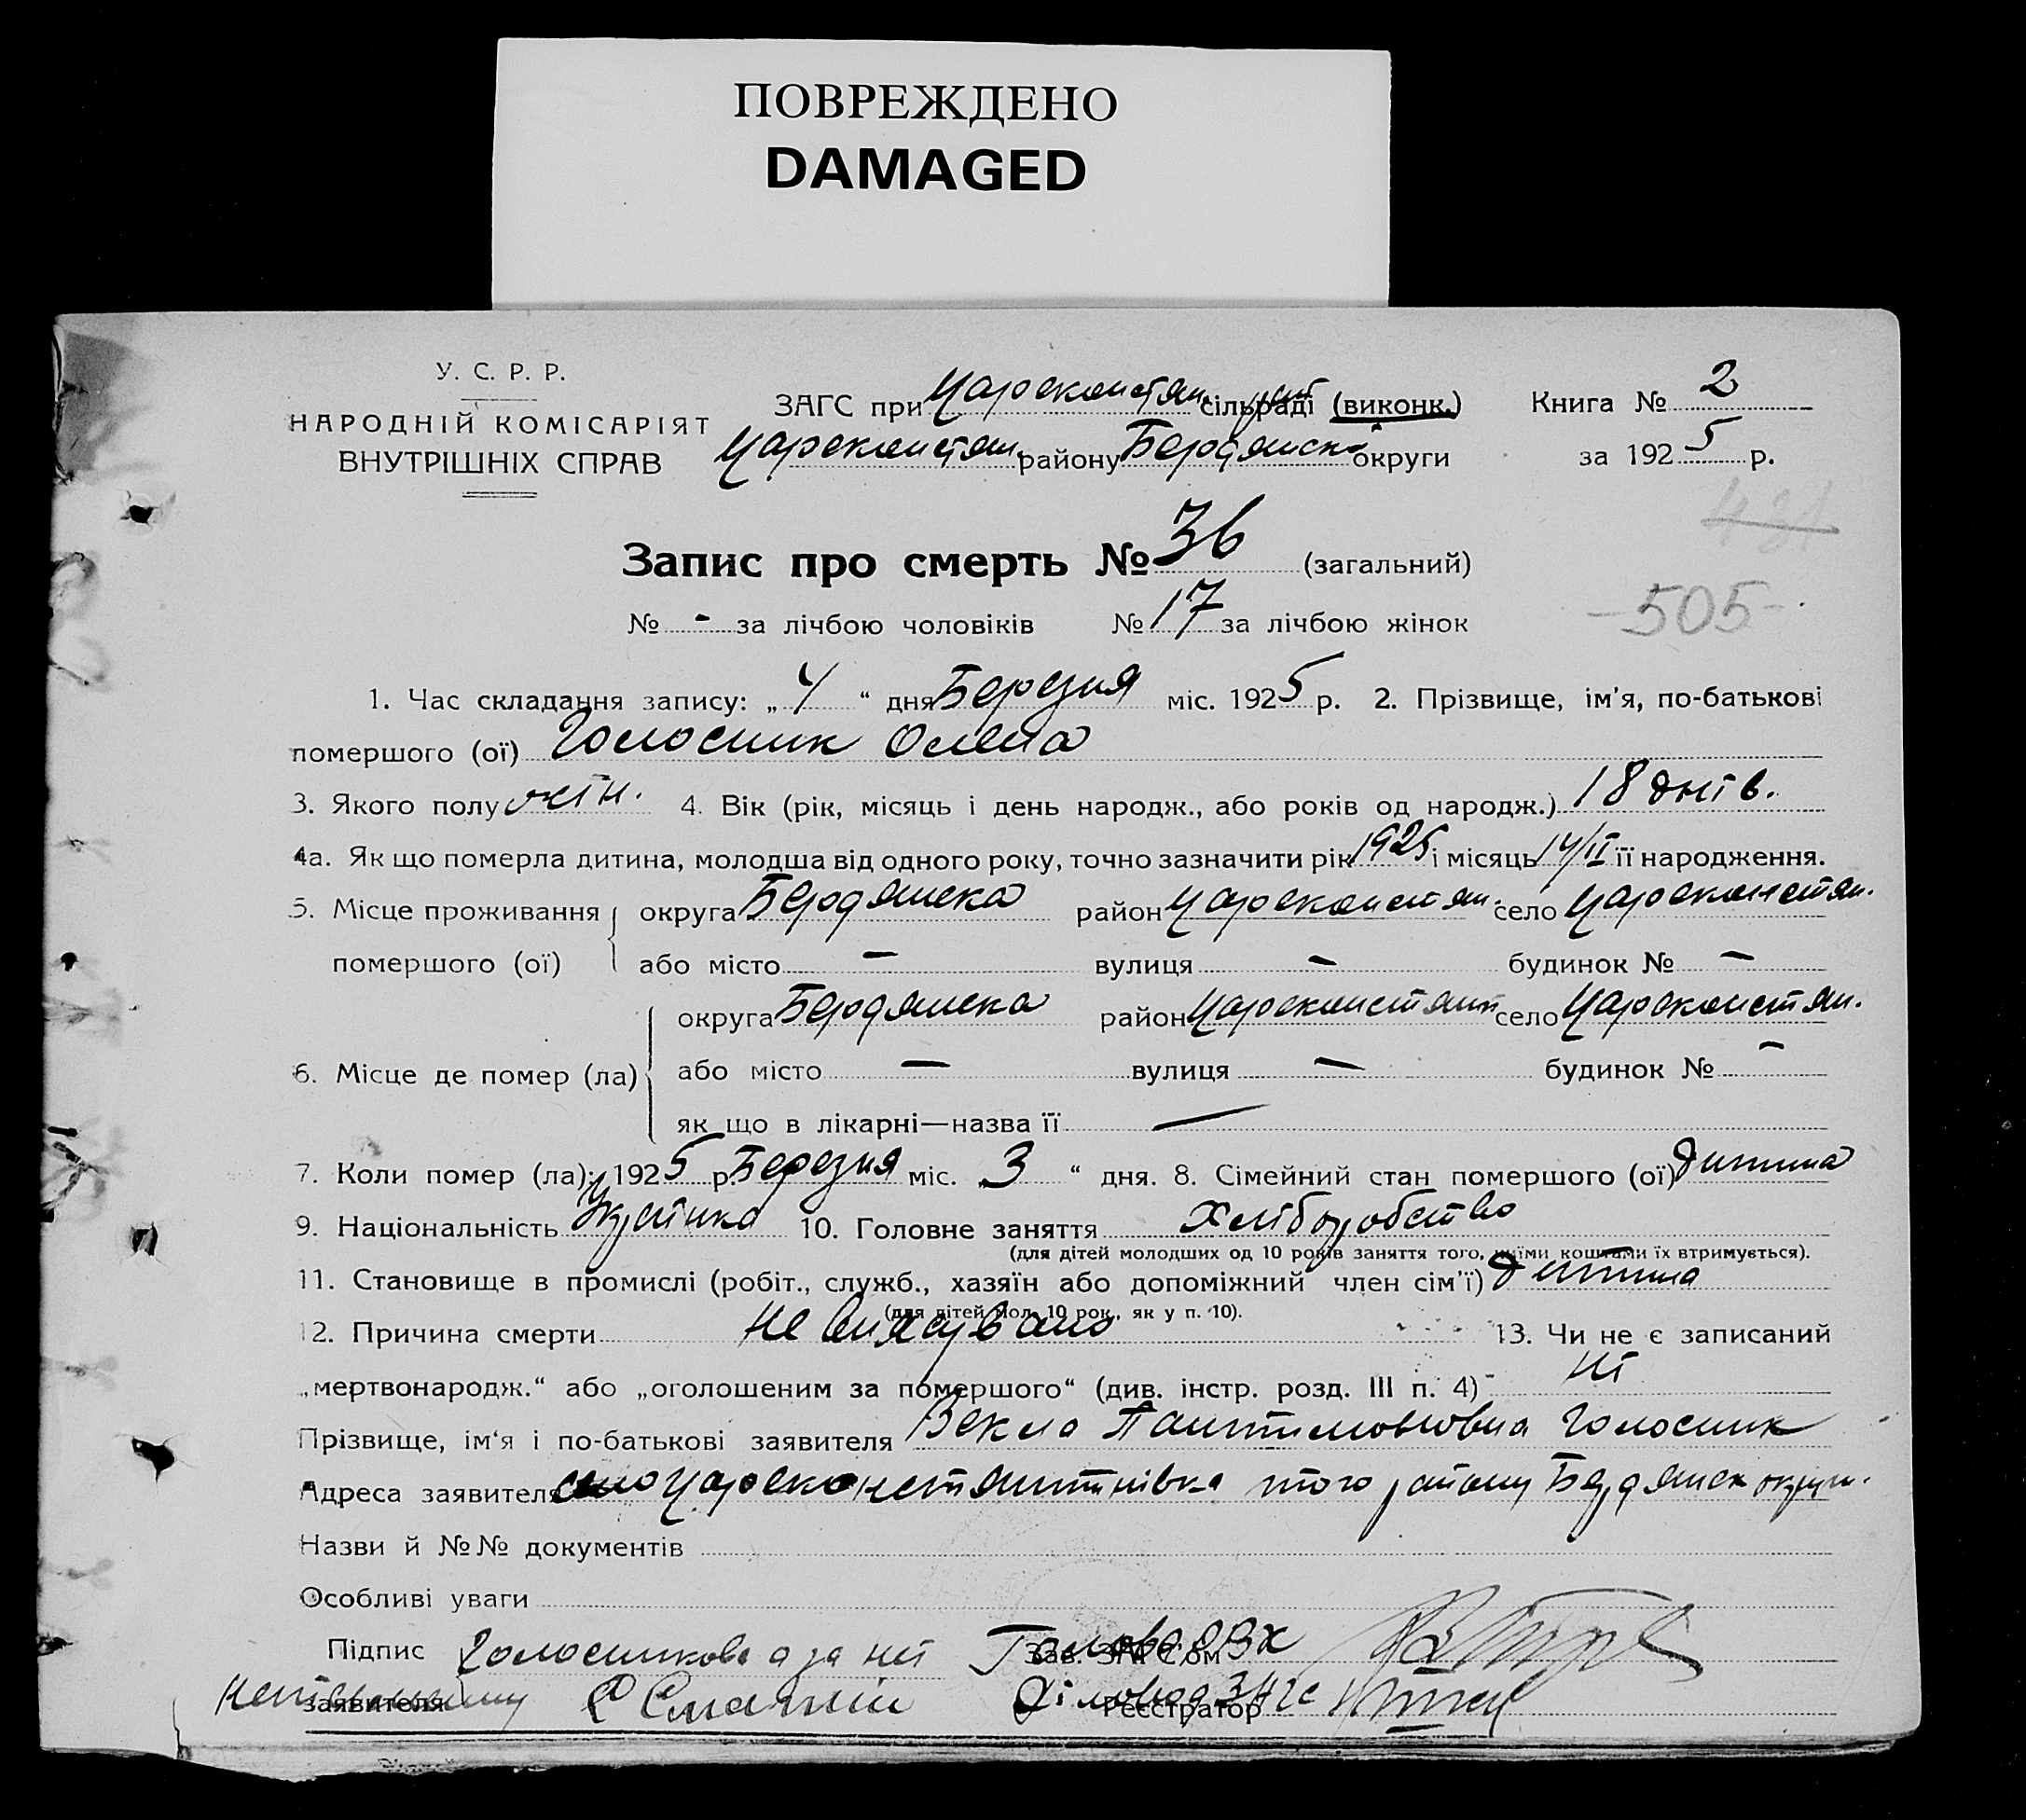 ПОВРЕЖДЕНО
DAMAGED
У. С. Р. Р.
НАРОДНІЙ КОМІСАРІЯТ
ВНУТРІШНІХ СПРАВ
ЗАГС при Царекомстан. сільраді (виконк.)
Царекомстан. району Бердянської округи
Книга № 2
за 1925 р.
431
Запис про смерть № 36 (загальний)
№ - за лічбою чоловіків № 17 за лічбою жінок
-505-
1. Час складання запису: „4“ дня Березня міс. 1925 р. 2. Прізвище, ім’я, по-батькові
помершого (ої) Голосник Олена
3. Якого полу жін. 4. Вік (рік, місяць і день народж., або років од народж.) 18 днів.
4а. Як що померла дитина, молодша від одного року, точно зазначити рік 1925 і місяць 14/II її народження.
5. Місце проживання помершого (ої) округа Бердянска район Цареконстан. село Цареконстан.
або місто — вулиця — будинок № —
6. Місце де помер (ла) округа Бердянска район Цареконстант село Цареконстан.
або місто — вулиця — будинок № —
як що в лікарні—назва її —
7. Коли помер (ла): 1925 р. Березня міс. „3“ дня. 8. Сімейний стан помершого (ої) Дитина
9. Національність Украінка 10. Головне заняття Хліборобство
(для дітей молодших од 10 років заняття того, чиїми коштами їх втримується).
11. Становище в промислі (робіт., служб., хазяїн або допоміжний член сім’ї) Дитина
(для дітей мол. 10 рок., як у п. 10).
12. Причина смерти не виясувано 13. Чи не є записаний
„мертвонародж.“ або „оголошеним за помершого“ (див. інстр. розд. III п. 4) ні
Прізвище, ім‘я і по-батькові заявителя Векла Пантимоновна Голосник
Адреса заявителя село Цареконстянтинівка того району Бердянск округи.
Назви й №№ документів
Особливі уваги
Підпис заявителя Голосникова а за неї
Зав. ЗАГС’ом
Реєстратор Діловод ЗАГС